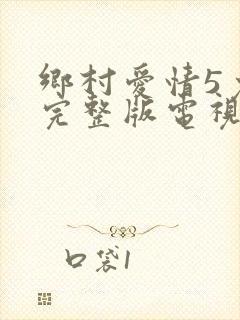 鄉村愛情5
完整版電視
口袋1